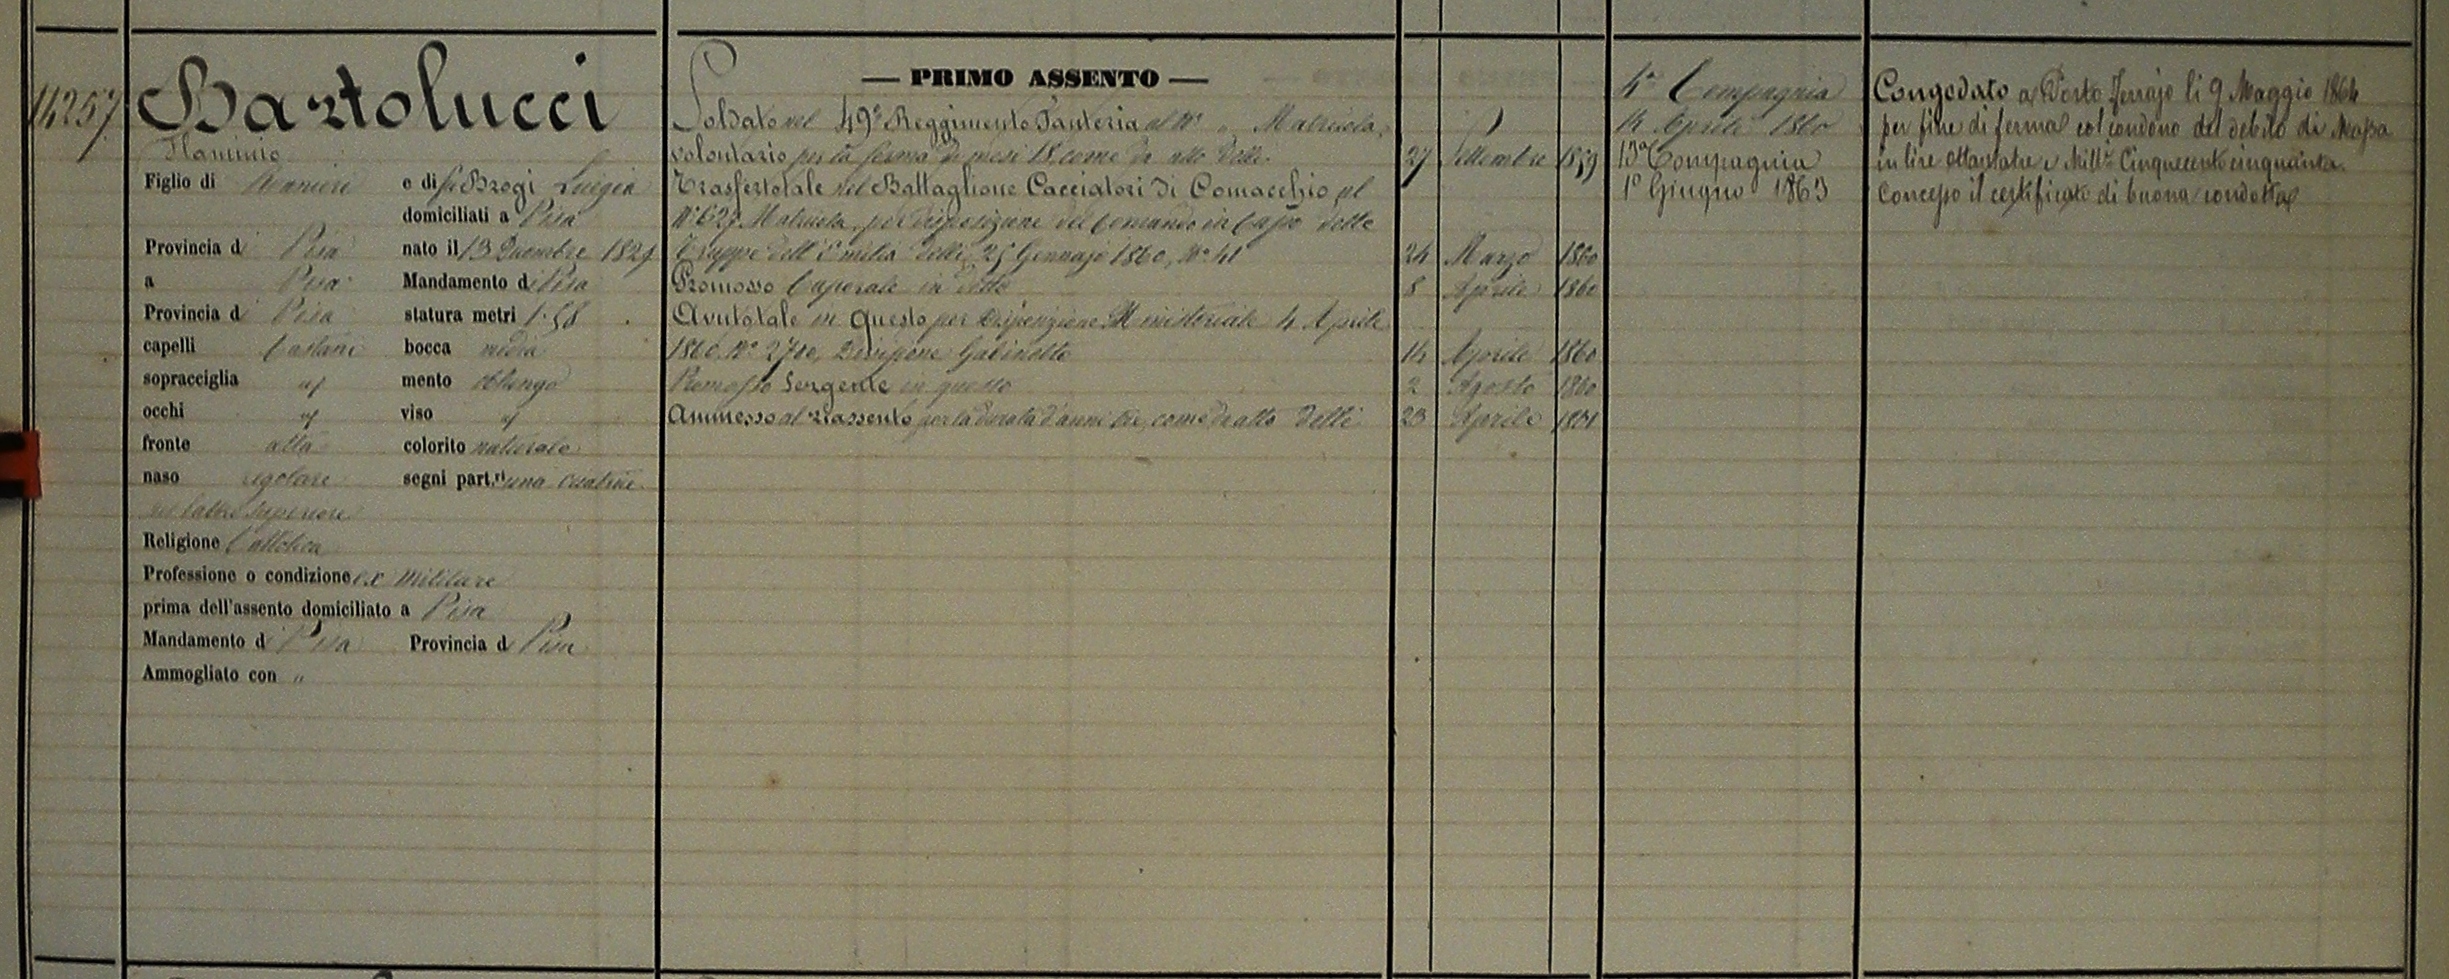 14257
Bartolucci
Flaminio
Figlio di Ranieri e di fu Brogi Luigia
domiciliati a Pisa
Provincia di Pisa nato il 13 Dicembre 1829
a Pisa Mandamento di Pisa
Provincia di Pisa statura metri 1.58
capelli Castani bocca media
sopracciglia id mento oblungo
occhi id viso id
fronte alta colorito naturale
naso regolare segni part.ri una cicatrice
nel labbro superiore
Religione Cattolica
Professione o condizione ex militare
prima dell'assento domiciliato a Pisa
Mandamento di Pisa Provincia di Pisa
Ammogliato con "
— PRIMO ASSENTO —
Soldato nel 49° Reggimento Fanteria al N° " Matricola,
volontario per la ferma di mesi 18 come da atto delli 27 Settembre 1859
Trasferto tale nel Battaglione Cacciatori di Comacchio al
N° 627 Matricola, per disposizione del Comando in Capo delle
Truppe dell'Emilia delli 25 Gennajo 1860, N° 41 24 Marzo 1860
Promosso Caporale in detto 8 Aprile 1860
Avuto tale in questo per Disposizione Ministeriale 4 Aprile
1860 N° 2700, Divisione Gabinetto 14 Aprile 1860
Promosso Sergente in questo 2 Agosto 1860
Ammesso al riassento per la durata d'anni tre, come da atto delli 23 Aprile 1861
4a Compagnia
14 Aprile 1860
13a Compagnia
1° Giugno 1863
Congedato a Porto Ferrajo li 9 Maggio 1864
per fine di ferma col condono del debito di Massa
in lire ottantatre e Mill.i Cinquecento cinquanta.
Concesso il certificato di buona condotta